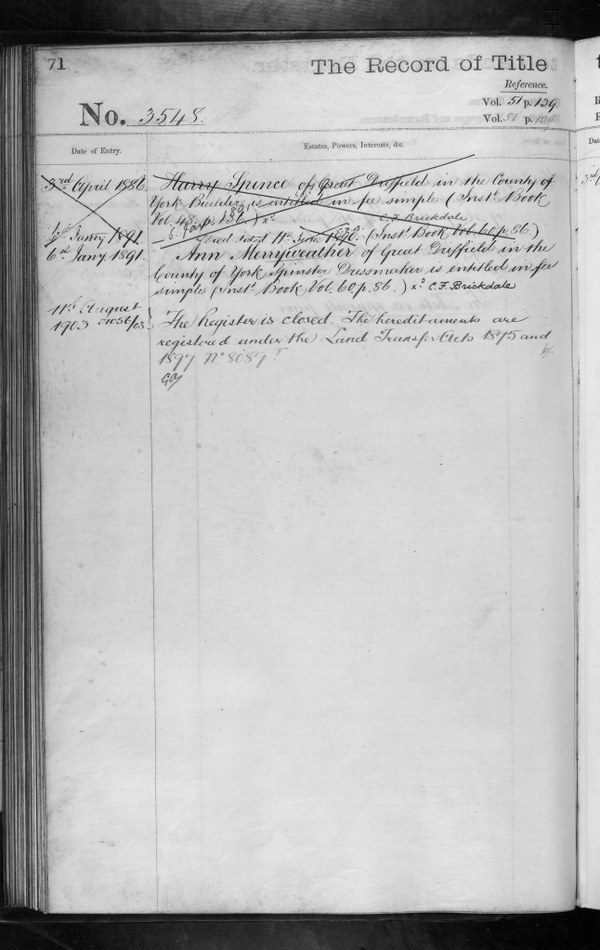 71
The Record of Title
Reference.
Vol. 51 p. 139
Vol. 51 p.
No. 3548.
Date of Entry.
Estates, Powers, Interests, &c.
3rd April 1886
Harry Spince of Great Driffield in the County of
York Builder is entitled in fee simple (Inst. Book
Vol. 48. p. 136)
C. F. Brickdale
Janry 1891
Deed dated 11th 1890. (Inst. Book Vol. 60 p. 86)
6th Janry. 1891.
Ann Merryweather of Great Driffield in the
County of York Spinster Dressmaker is entitled in fee
simple (Inst. Book, Vol. 60, p. 86.) C. F. Brickdale
11th August
1903
The Register is closed. The hereditaments are
registered under the Land Transfer Acts 1875 and
1897 No 8089